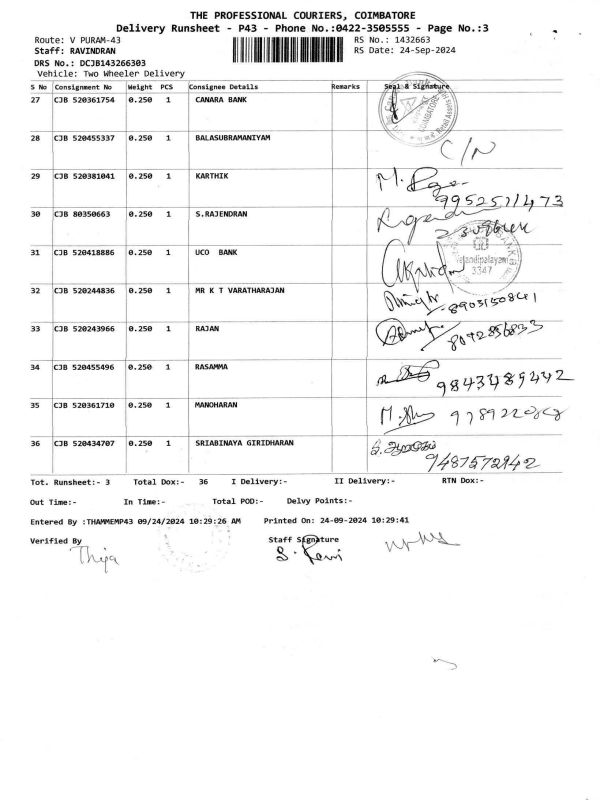 THE PROFESSIONAL COURIERS, COIMBATORE
Delivery Runsheet - P43 - Phone No.:0422-3505555 - Page No.:3
Route: V PURAM-43 RS No.: 1432663
Staff: RAVINDRAN RS Date: 24-Sep-2024
DRS No.: DCJB143266303
Vehicle: Two Wheeler Delivery
S No Consignment No Weight PCS Consignee Details Remarks Seal & Signature
27 CJB 520361754 0.250 1 CANARA BANK
COIMBATORE
28 CJB 520455337 0.250 1 BALASUBRAMANIYAM
C/N
29 CJB 520381041 0.250 1 KARTHIK
9952511473
30 CJB 80350663 0.250 1 S.RAJENDRAN
31 CJB 520418886 0.250 1 UCO BANK
3347
32 CJB 520244836 0.250 1 MR K T VARATHARAJAN
33 CJB 520243966 0.250 1 RAJAN
34 CJB 520455496 0.250 1 RASAMMA
9843489442
35 CJB 520361710 0.250 1 MANOHARAN
36 CJB 520434707 0.250 1 SRIABINAYA GIRIDHARAN
9487572942
Tot. Runsheet:- 3 Total Dox:- 36 I Delivery:- II Delivery:- RTN Dox:-
Out Time:- In Time:- Total POD:- Delvy Points:-
Entered By :THAMMEMP43 09/24/2024 10:29:26 AM Printed On: 24-09-2024 10:29:41
Verified By Staff Signature